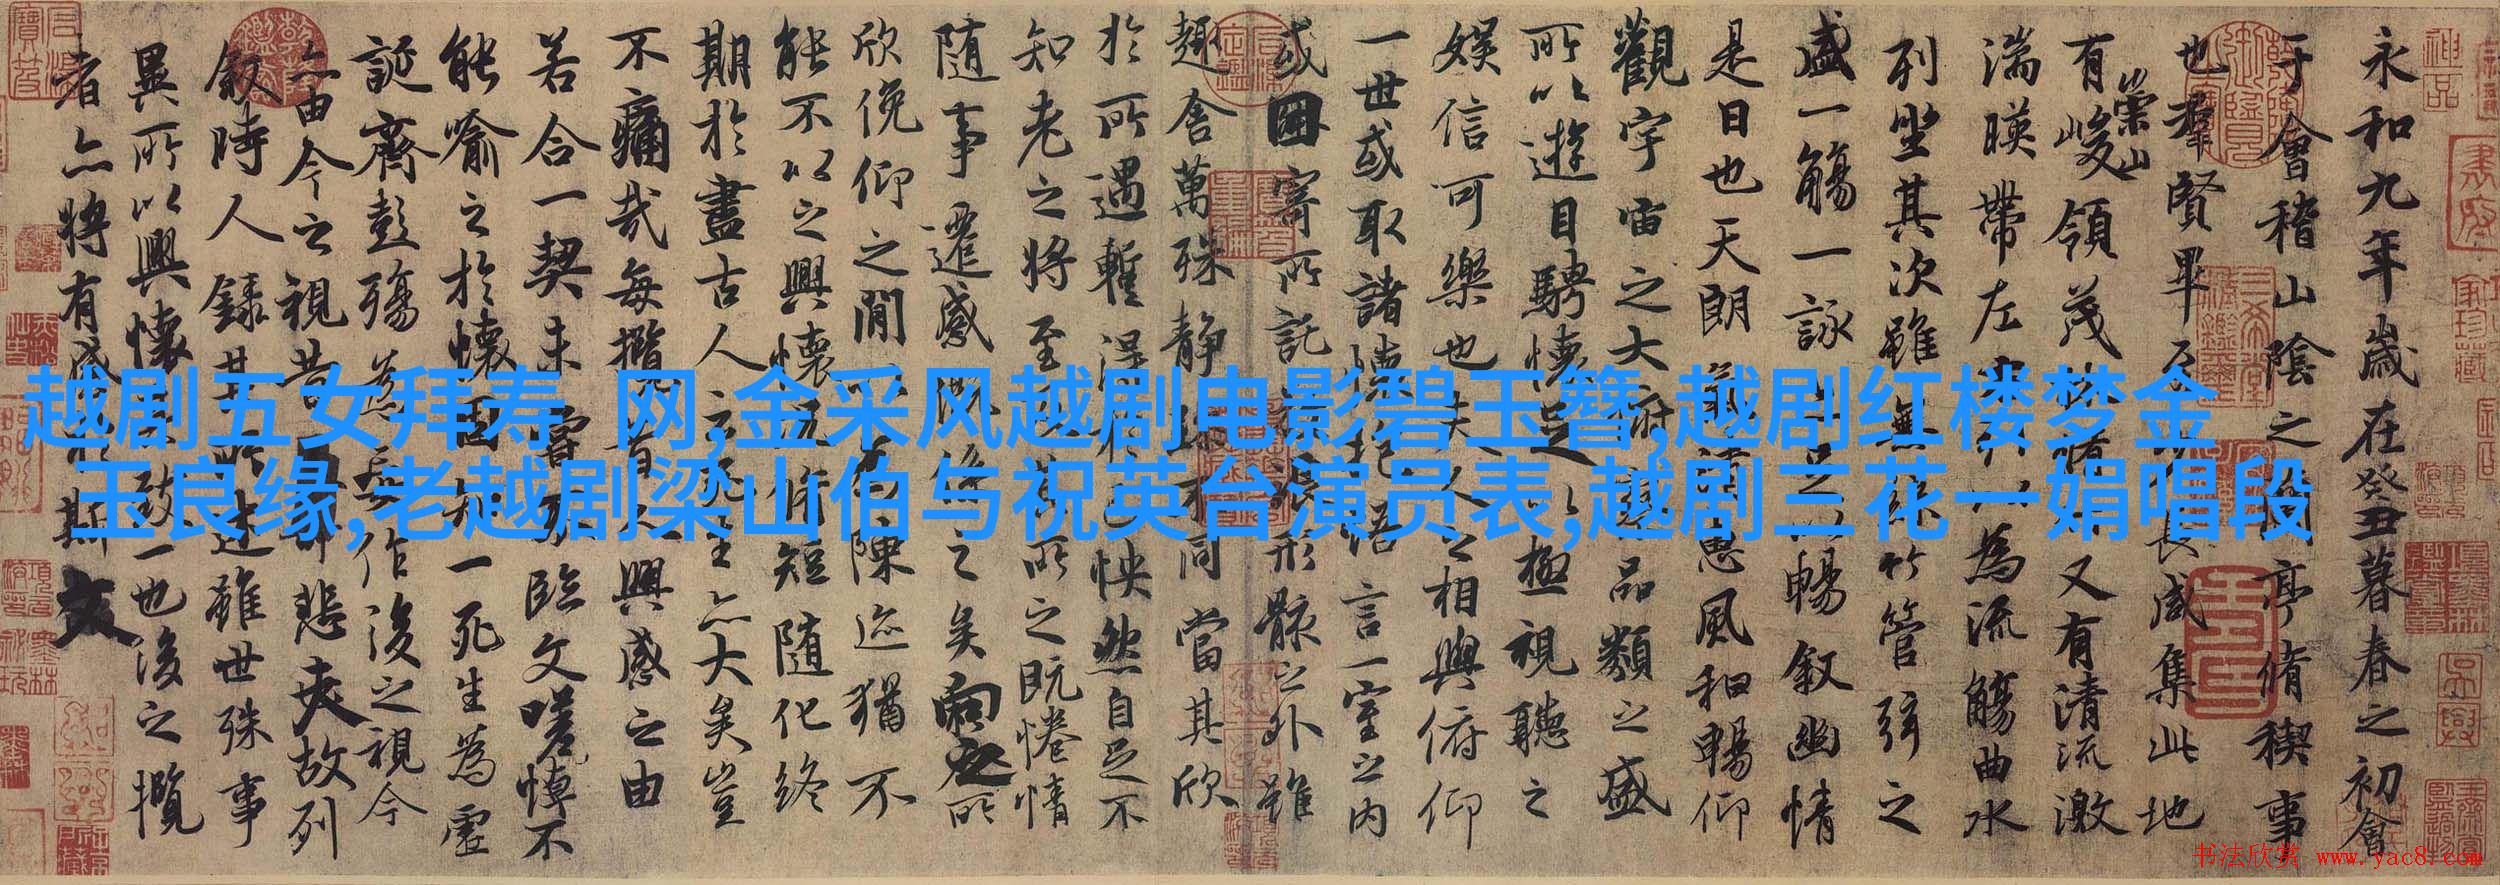 越剧五女拜寿 网,金采风越剧电影碧玉簪,越剧红楼梦金
玉良缘,老越剧梁山伯与祝英台演员表,越剧三花一娟唱段
永和九年歲在癸丑暮春之初會
于會稽山陰之蘭亭脩稧事
也羣賢畢至少長咸集此地
有崇山峻領茂林脩竹又有清流激
湍暎帶左右引以為流觴曲水
列坐其次雖無絲竹管弦之
盛一觴一詠亦足以暢敘幽情
是日也天朗氣清惠風和暢仰
觀宇宙之大俯察品類之盛
所以遊目騁懷足以極視聽之
娛信可樂也夫人之相與俯仰
一世或取諸懷抱悟言一室之內
或因寄所託放浪形骸之外雖
趣舍萬殊靜躁不同當其欣
於所遇暫得於己怏然自足不
知老之將至及其所之既惓情
隨事遷感慨係之矣向之所
欣俛仰之閒以為陳迹猶不
能不以之興懷況脩短隨化終
期於盡古人云死生亦大矣豈
不痛哉每攬昔人興感之由
若合一契未嘗不臨文嗟悼不
能喻之於懷固知一死生為虛
誕齊彭殤為妄作後之視今
亦由今之視昔悲夫故列
敘時人錄其所述雖世殊事
異所以興懷其致一也後之攬
者亦將有感於斯文
书法欣赏 www.yac8.com